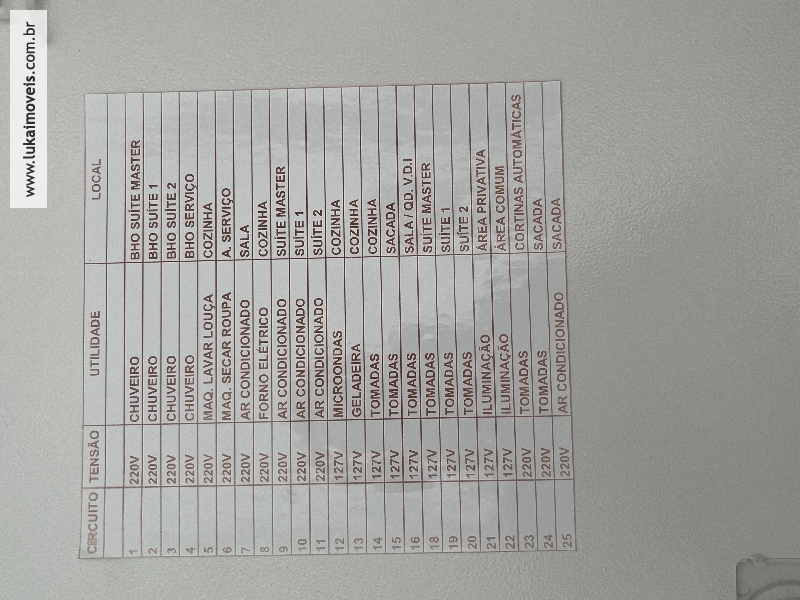 www.lukaimoveis.com.br
CIRCUITO TENSÃO UTILIDADE LOCAL
1 220V CHUVEIRO BHO SUÍTE MASTER
2 220V CHUVEIRO BHO SUÍTE 1
3 220V CHUVEIRO BHO SUÍTE 2
4 220V CHUVEIRO BHO SERVIÇO
5 220V MAQ. LAVAR LOUÇA COZINHA
6 220V MAQ. SECAR ROUPA A. SERVIÇO
7 220V AR CONDICIONADO SALA
8 220V FORNO ELÉTRICO COZINHA
9 220V AR CONDICIONADO SUÍTE MASTER
10 220V AR CONDICIONADO SUÍTE 1
11 220V AR CONDICIONADO SUÍTE 2
12 127V MICROONDAS COZINHA
13 127V GELADEIRA COZINHA
14 127V TOMADAS COZINHA
15 127V TOMADAS SACADA
16 127V TOMADAS SALA / QD. V.D.I
18 127V TOMADAS SUÍTE MASTER
19 127V TOMADAS SUÍTE 1
20 127V TOMADAS SUÍTE 2
21 127V ILUMINAÇÃO ÁREA PRIVATIVA
22 127V ILUMINAÇÃO ÁREA COMUM
23 220V TOMADAS CORTINAS AUTOMÁTICAS
24 220V TOMADAS SACADA
25 220V AR CONDICIONADO SACADA